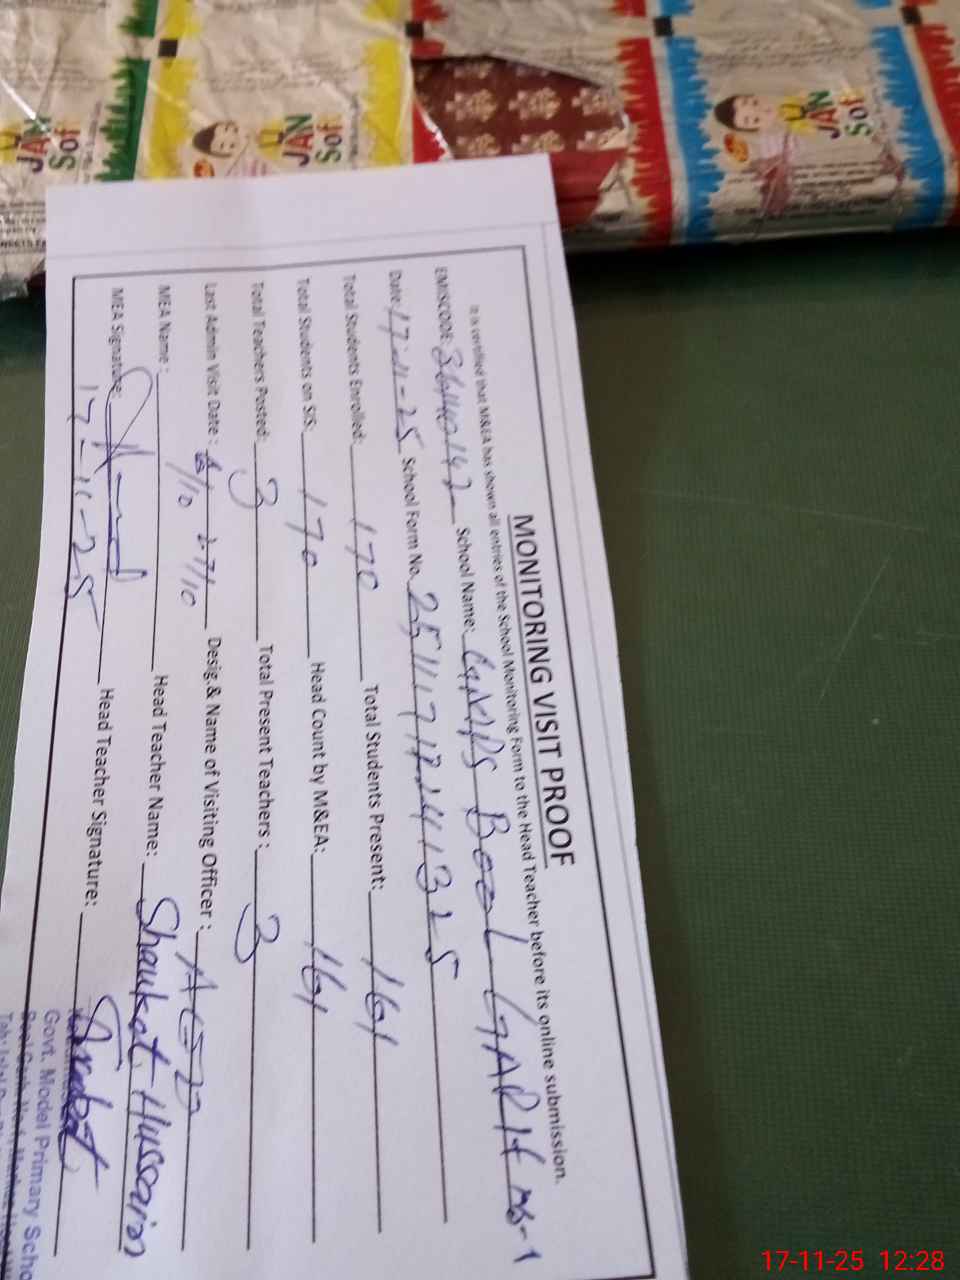 MONITORING VISIT PROOF
It is certified that M&EA has shown all entries of the School Monitoring Form to the Head Teacher before its online submission.
EMISCODE: School Name: GMPS Bool GARH no-1
Date: 17-11-25 School Form No. 2511171724141325
Total Students Enrolled: 170 Total Students Present: 161
Total Students on SIS: 170 Head Count by M&EA: 161
Total Teachers Posted: 3 Total Present Teachers: 3
Last Admin Visit Date: 27/10 Desig.& Name of Visiting Officer: AEO
MEA Name: Head Teacher Name: Shaukat Hussain
MEA Signature: Head Teacher Signature:
17-11-25
Govt. Model Primary Scho
JAN
Sof
JAN
Sof
JAN
Sof
17-11-25 12:28